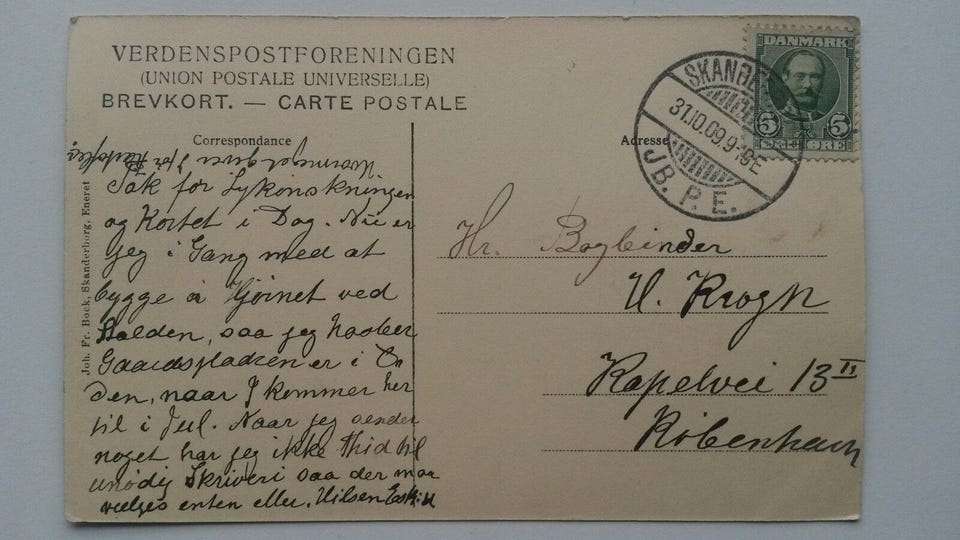 VERDENSPOSTFORENINGEN
(UNION POSTALE UNIVERSELLE)
BREVKORT. — CARTE POSTALE
DANMARK
5 5
ØRE
31.10.09. 9-
JB. P. E.
Correspondance
Adresse
Tak for Lykønskningen
og Kortet i Dag. Nu er
jeg i Gang med at
bygge a Hjørnet ved
Stalden, saa jeg haaber
Gaardspladsen er i Or
den, naar I kommer her
til i Jul. Naar jeg sender
noget har jeg ikke Thid til
unødig Skriveri saa der maa
vælges enten eller. Hilsen
Hr. Bogbinder
H. Krogh
Kapelvei 13 II
København
Joh. Fr. Bock, Skanderborg, Eneret